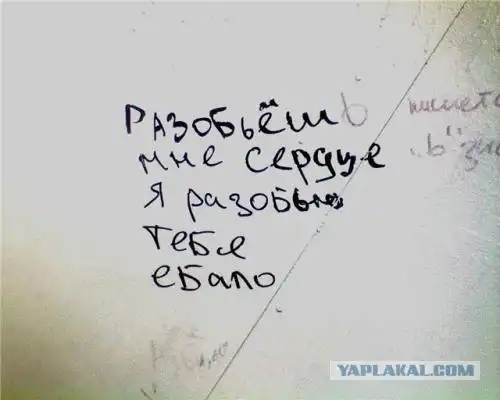 РАЗОБЬЁШЬ
мне сердце
Я разобью
тебе
ебало
пишетс
"Ь" зн
YAPLAKAL.COM